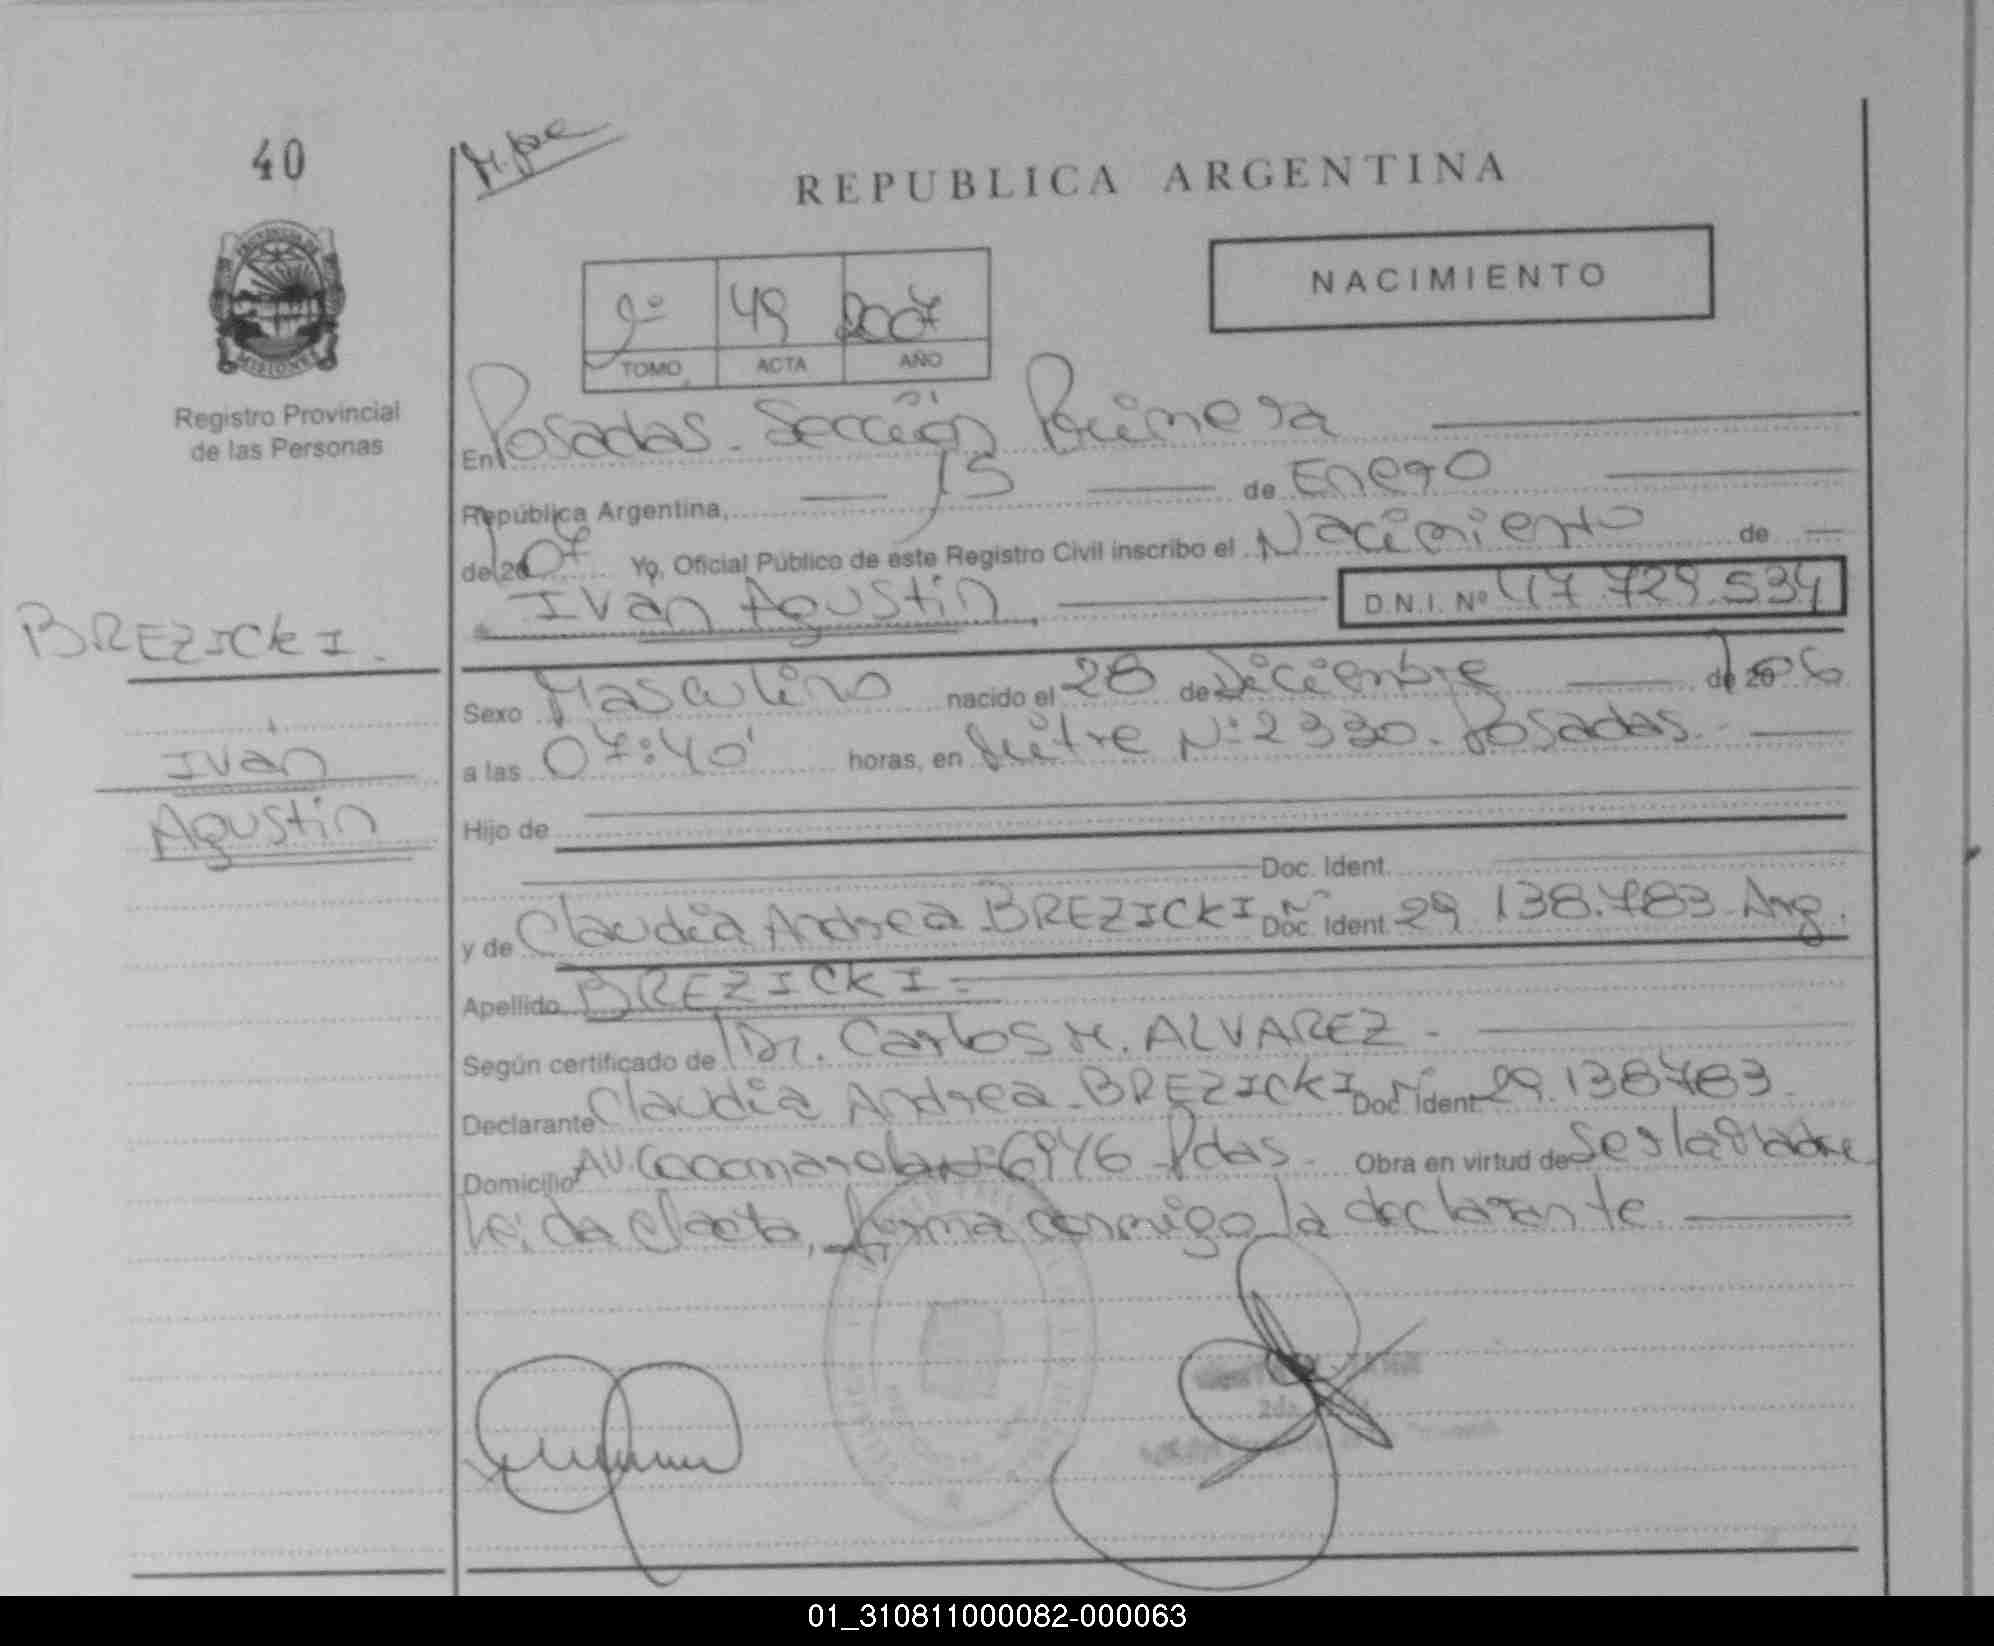 40
REPUBLICA ARGENTINA
NACIMIENTO
49 2007
TOMO ACTA AÑO
PROVINCIA DE
MISIONES
Registro Provincial
de las Personas
En Posadas. Sección Primera
República Argentina, 15 de Enero
del 2007 Yo, Oficial Público de este Registro Civil inscribo el Nacimiento de
Ivan Agustin, D.N.I. Nº 47.729.534
BREZICKI.
Ivan
Agustin
Sexo Masculino nacido el 28 de Diciembre de 2006
a las 07:40' horas, en Mitre Nº: 2330. Posadas.
Hijo de
Doc. Ident.
y de Claudia Andrea BREZICKI Doc. Ident. Nº 29.138.783. Arg.
Apellido BREZICKI =
Según certificado de Dr. Carlos M. ALVAREZ.
Declarante Claudia Andrea BREZICKI Doc. Ident. Nº 29.138783.
Domicilio AV. Cocomarola Nº 6946 Pdas. Obra en virtud de Ser la Madre
Leida el acta, firma conmigo la declarante.
01_310811000082-000063